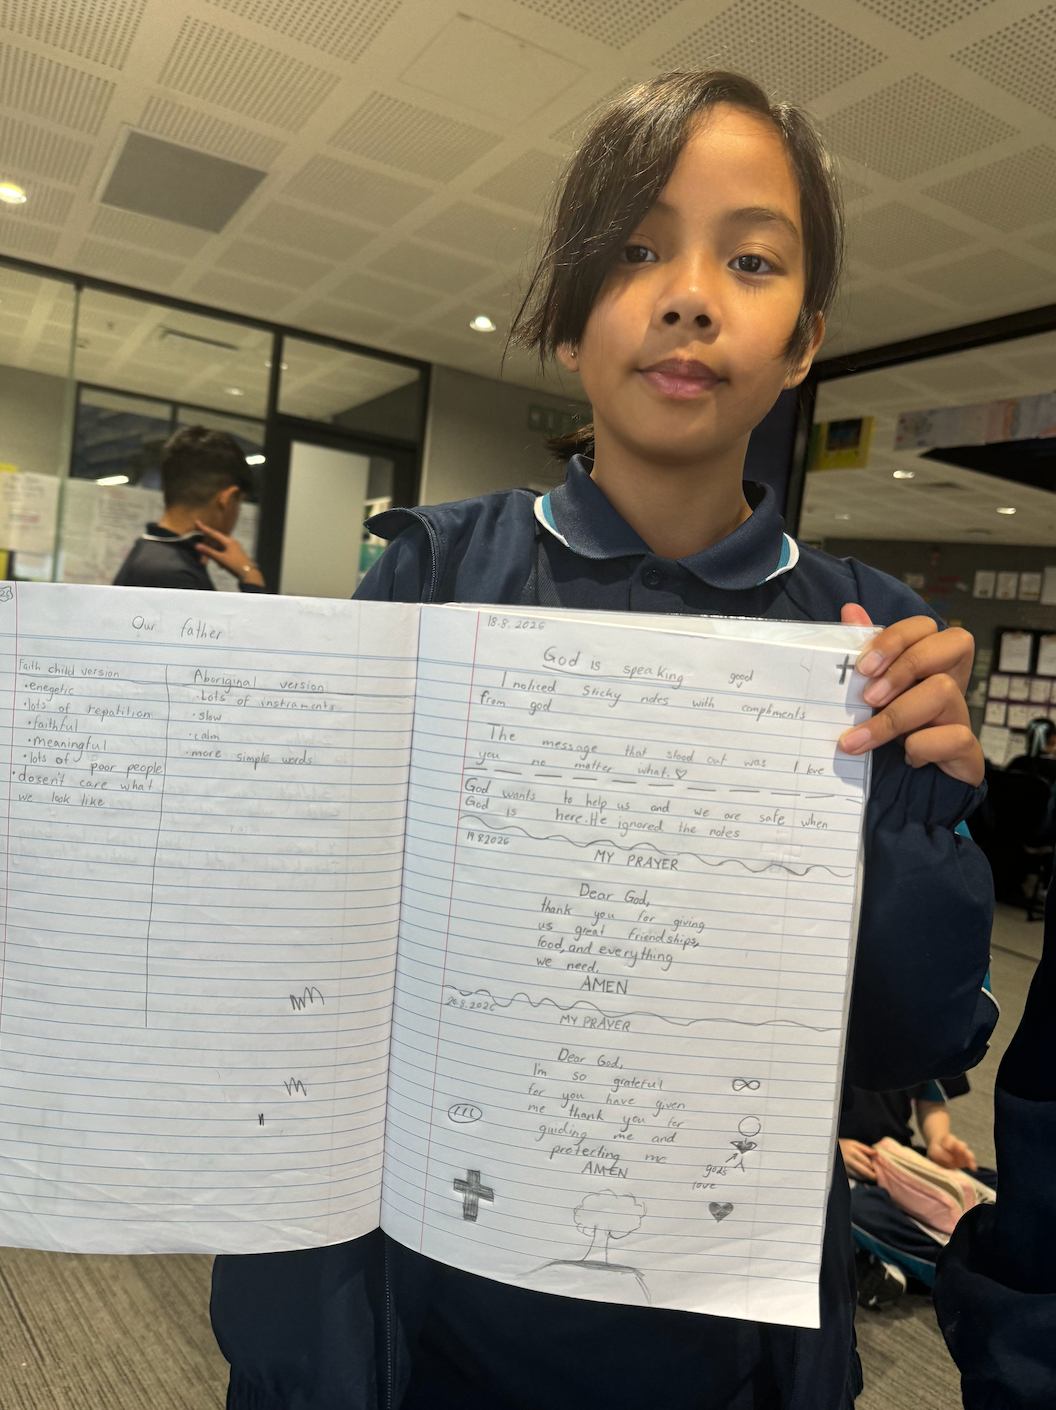 Our father
Faith child version
•enegetic
•lots of repatition
•faithful
•meaningful
•lots of poor people
•dosen't care what
we look like
Aboriginal version
•Lots of instraments
•slow
•calm
•more simple words
18.8.2026
God is speaking good
I noticed sticky notes with compliments
from god
The message that stood out was I love
you no matter what.
God wants to help us and we are safe when
God is here. He ignored the notes
19.8.2026
MY PRAYER
Dear God,
thank you for giving
us great friendships,
food, and everything
we need.
AMEN
20.8.2026
MY PRAYER
Dear God,
I'm so grateful
for you have given
me thank you for
guiding me and
protecting me
AMEN
gods
love